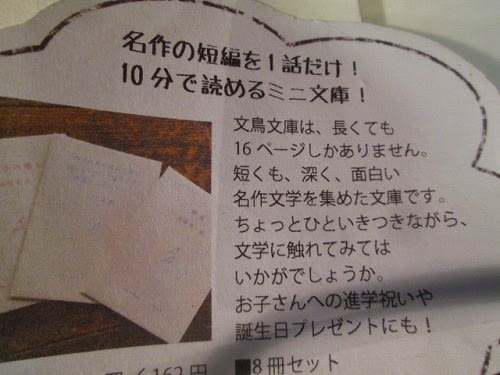 名作の短編を1話だけ!
10分で読めるミニ文庫!
文鳥文庫は、長くても
16ページしかありません。
短くも、深く、面白い
名作文学を集めた文庫です。
ちょっとひといきつきながら、
文学に触れてみては
いかがでしょうか。
お子さんへの進学祝いや
誕生日プレゼントにも!
162円
■8冊セット